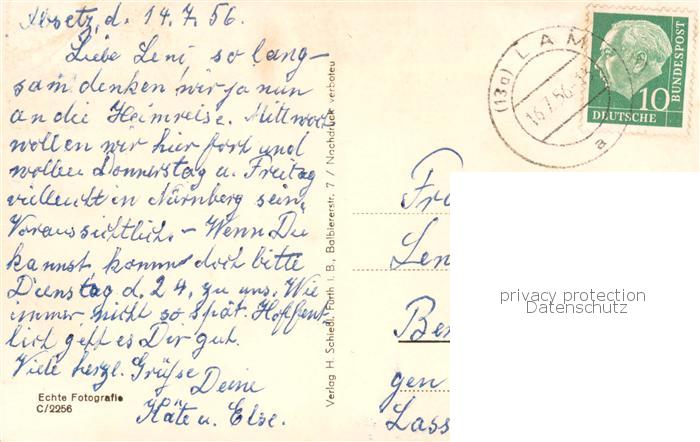 Absetz, d. 14.7.56.
Liebe Leni, so lang-
sam denken wir ja nun
an die Heimreise. Mittwoch
wollen wir hier fort und
wollen Donnerstag u. Freitag
vielleicht in Nürnberg sein,
Voraussichtlich. – Wenn Du
kannst, komm doch bitte
Dienstag d. 24. zu uns. Wie
immer nicht so spät. Hoffent-
lich geht es Dir gut.
Viele herzl. Grüße
Deine
Käte u. Else.
Echte Fotografie
C/2256
Verlag H. Schiedl, Fürth i. B., Balbiererstr. 7 / Nachdruck verboten
(13a) LAM
16.7.56
a
10
DEUTSCHE
BUNDESPOST
Fra
Len
Ber
gen
Lass
privacy protection
Datenschutz